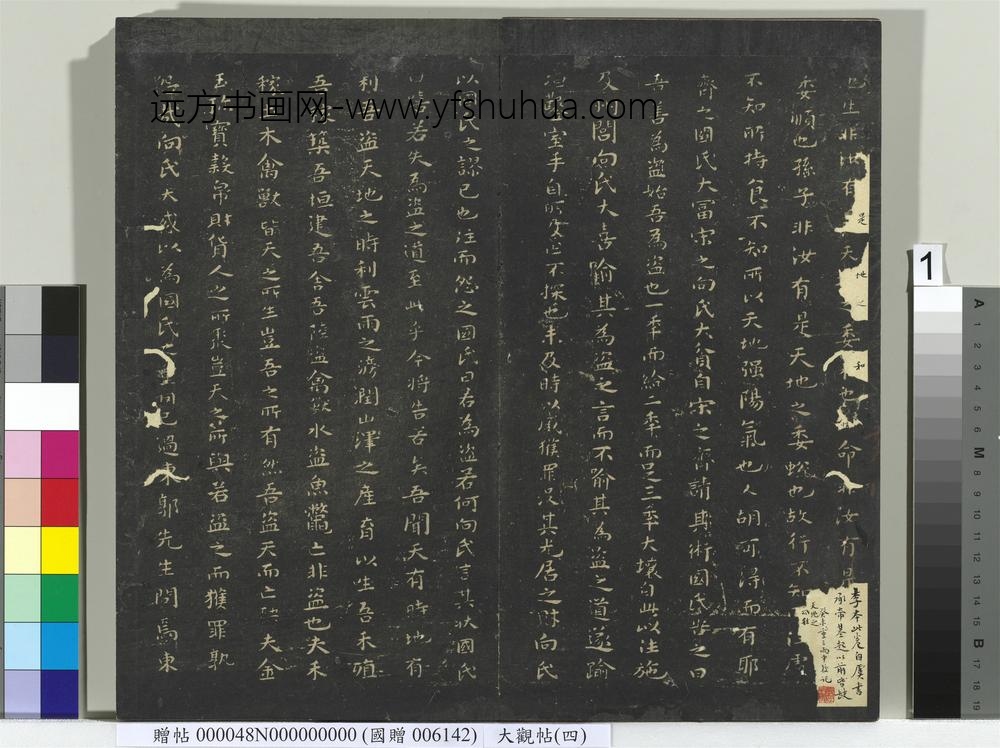 远方书画网-www.yfshuhua.com
也生非汝有是天地之委和也命非汝有是
委順也孫子非汝有是天地之委蛻也故行不知
不知所持食不知所以天地强陽氣也人胡可得而有耶
齊之國氏大富宋之向氏大貧自宋之齊請其術國氏告之曰
吾善為盜始吾為盜也一年而給二年而足三年大壤自此以往施
及州閭向氏大喜喻其為盜之言而不喻其為盜之道遂踰
垣鑿室手目所及亡不探也未及時以贓獲罪沒其先居之財向氏
以國氏之謬己也往而怨之國氏曰若為盜若何向氏言其狀國氏
曰嘻若失為盜之道至此乎今將告若矣吾聞天有時地有
利吾盜天地之時利雲雨之滂潤山澤之產育以生吾禾殖
吾稼築吾垣建吾舍吾陸盜禽獸水盜魚鱉亡非盜也夫禾
稼土木禽獸皆天之所生豈吾之所有然吾盜天而亡殃夫金
玉珍寶穀帛財貨人之所聚豈天之所與若盜之而獲罪孰
怨哉向氏大惑以為國氏之重罔己過東郭先生問焉東
李本此卷自虞書
承帝基起以前皆缺
癸未重三雨中檢記
天地之
1
A 1 2 3 4 5 6 M 8 9 10 11 12 13 14 15 B 17 18 19
贈帖 000048N000000000 (國贈 006142) 大觀帖(四)